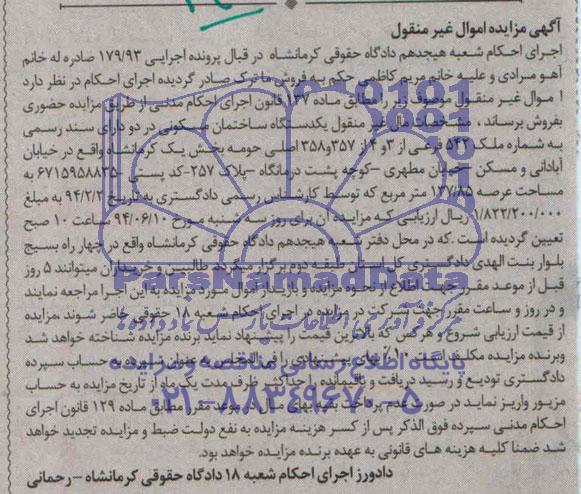 آگهی مزایده اموال غیر منقول
اجرای احکام شعبه هیجدهم دادگاه حقوقی کرمانشاه در قبال پرونده اجرایی ۱۷۹/۹۳ صادره له خانم
آهو مرادی و علیه خانم مریم کاظمی حکم به فروش ماترک صادر گردیده اجرای احکام در نظر دارد
اموال غیر منقول موصوف زیر را مطابق ماده ۱۳۷ قانون اجرای احکام مدنی از طریق مزایده حضوری
بفروش برساند ، مشخصات مال غیر منقول یکدستگاه ساختمان مسکونی در دو دارای سند رسمی
به شماره ملک ۵۴۲ فرعی از ۳ و ۴ از ۳۵۷و۳۵۸ اصلی حومه بخش یک کرمانشاه واقع در خیابان
آبادانی و مسکن -خیابان مطهری -کوچه پشت درمانگاه -پلاک ۲۵۷-کد پستی ۶۷۱۵۹۵۸۸۳۵- به
مساحت عرصه ۱۳۷/۸۵ متر مربع که توسط کارشناس رسمی دادگستری به تاریخ ۹۴/۲/۲ به مبلغ
۱/۸۲۲/۲۰۰/۰۰۰ ریال ارزیابی که مزایده آن برای روز سه شنبه مورخ ۹۴/۰۶/۱۰ ساعت ۱۰ صبح
تعیین گردیده است .که در محل دفتر شعبه هیجدهم دادگاه حقوقی کرمانشاه واقع در چهار راه بسیج
بلوار بنت الهدی دادگستری کل استان طبقه دوم برگزار میگردد. طالبین و خریداران میتوانند ۵ روز
قبل از موعد مقرر جهت اطلاع از نحوه مزایده و بازدید از اموال مورد مزایده به این اجرا مراجعه نمایند
و در روز و ساعت مقرر جهت شرکت در مزایده در اجرای احکام شعبه ۱۸ حقوقی حاضر شوند مزایده
از قیمت ارزیابی شروع و هرکس که بالاترین قیمت را پیشنهاد نماید برنده مزایده شناخته خواهد شد
وبرنده مزایده مکلف است ۱۰٪ بهای پیشنهادی را فی المجلس به عنوان سپرده به حساب سپرده
دادگستری تودیع و رسید دریافت و باقیمانده را حداکثر ظرف مدت یک ماه از تاریخ مزایده به حساب
مزبور واریز نماید در صورت عدم پرداخت بقیه بهای مال در موعد مقرر مطابق ماده ۱۲۹ قانون اجرای
احکام مدنی سپرده فوق الذکر پس از کسر هزینه مزایده به نفع دولت ضبط و مزایده تجدید خواهد
شد ضمنا کلیه هزینه های قانونی به عهده برنده مزایده خواهد بود.
دادورز اجرای احکام شعبه ۱۸ دادگاه حقوقی کرمانشاه -رحمانی
ParsNamadData
پایگاه اطلاع رسانی مناقصه و مزایده
۰۲۱-۸۸۳۴۹۶۷۰-۵